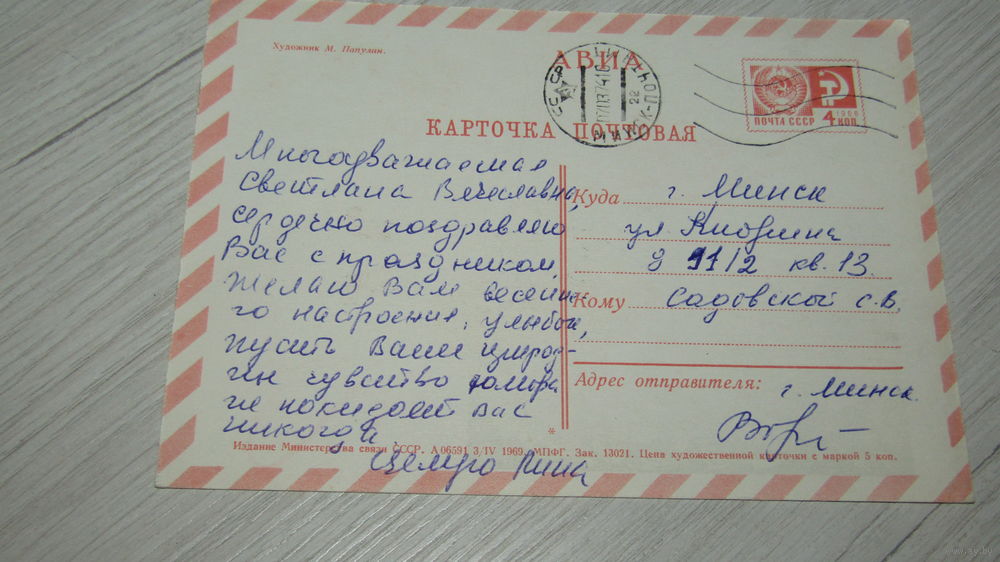 Художник М. Папулин.
АВИА
КАРТОЧКА ПОЧТОВАЯ
СССР
МИНСК-ПОЧ
ПОЧТА СССР
1966
4 КОП.
Многоуважаемая
Светлана Вячеславна,
сердечно поздравляю
Вас с праздником,
желаю Вам весенне-
го настроения, улыбок,
пусть Ваше природ-
ное чувство юмора
не покидает Вас
никогда.
Куда г. Минск
ул.
д 91/2 кв. 13.
Кому Садовской С.В.
Адрес отправителя:
г. Минск.
Издание Министерства связи СССР. А 06591 3/IV 1969. МПФГ. Зак. 13021. Цена художественной карточки с маркой 5 коп.